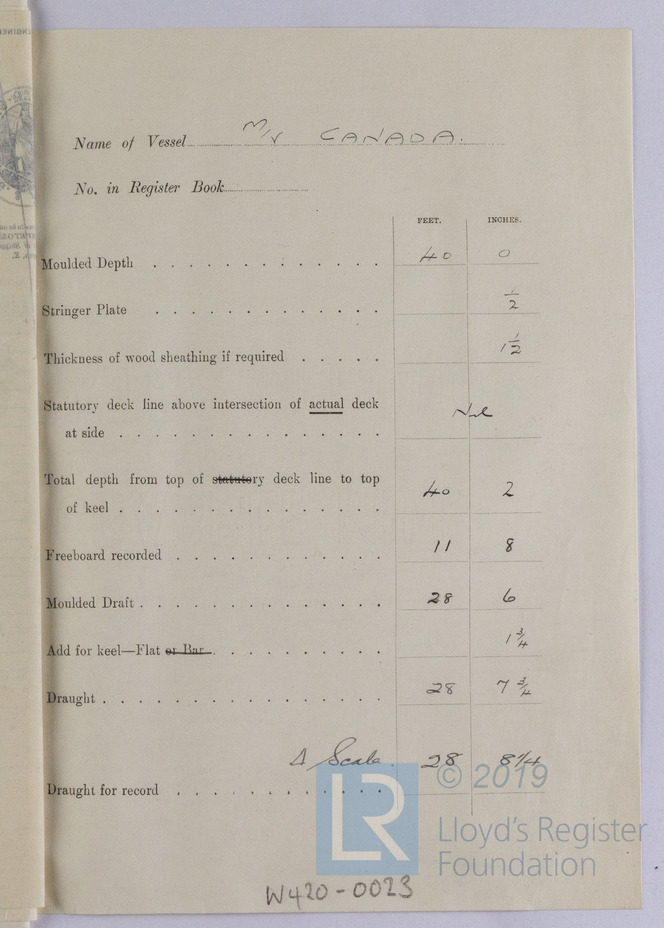 Name of Vessel M/V CANADA.
No. in Register Book
FEET. INCHES.
Moulded Depth 40 0
Stringer Plate 1/2
Thickness of wood sheathing if required 1 1/2
Statutory deck line above intersection of actual deck
at side Nil
Total depth from top of statutory deck line to top
of keel 40 2
Freeboard recorded 11 8
Moulded Draft 28 6
Add for keel—Flat or Bar 1 3/4
Draught 28 7 3/4
Δ Scale 28 8 1/4
Draught for record
LR
© 2019
Lloyd's Register
Foundation
W420-0023